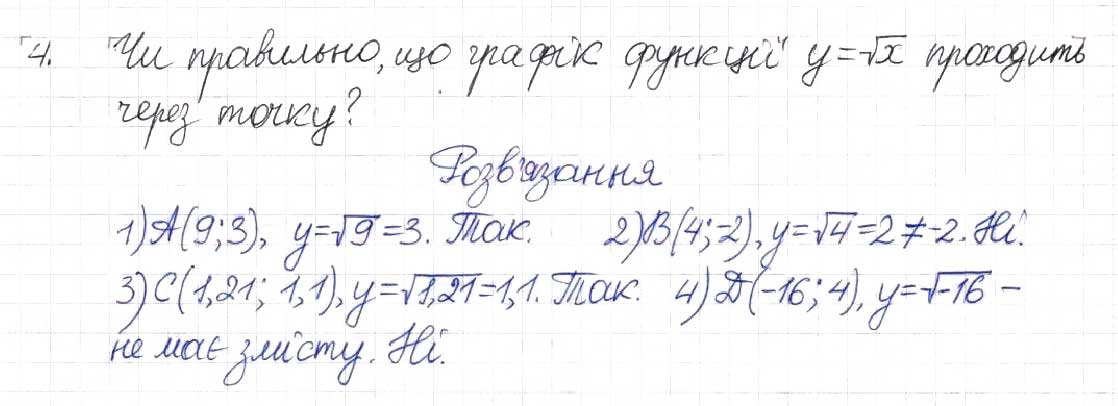 4. Чи правильно, що графік функції y=√x проходить
через точку?
Розв'язання
1) A(9; 3), y=√9=3. Так. 2) B(4; -2), y=√4=2≠-2. Ні.
3) C(1,21; 1,1), y=√1,21=1,1. Так. 4) D(-16; 4), y=√-16 –
не має змісту. Ні.